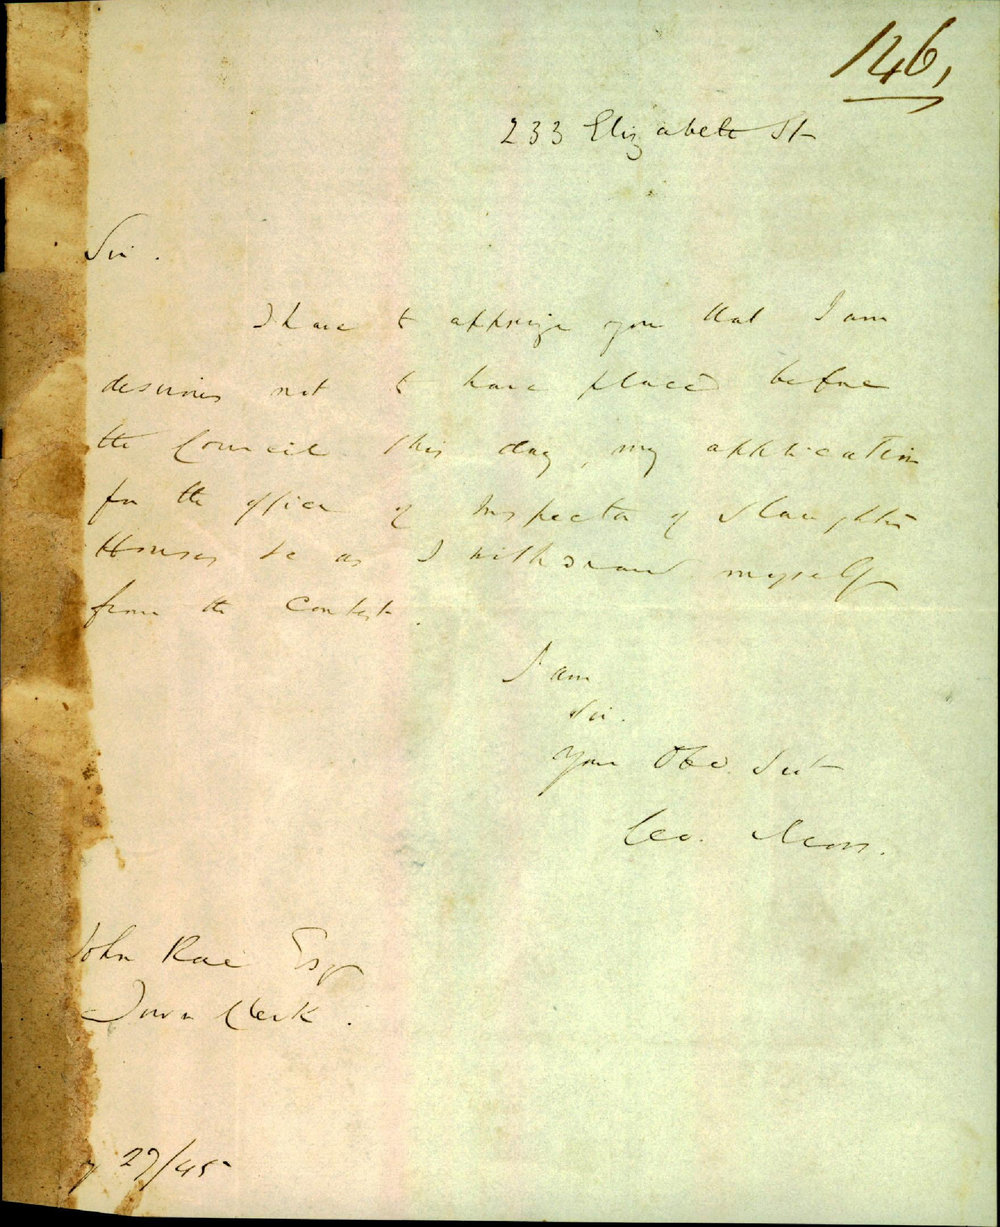 146,
233 Elizabeth St
Sir.
I have to apprize you that I am
desirous not to have placed before
the Council this day, my application
for the office of Inspector of Slaughter
Houses &c as I withdraw myself
from the Contest.
I am
Sir.
Your Obd. Svt
Geo.
John Rae Esq
Town Clerk.
27/45